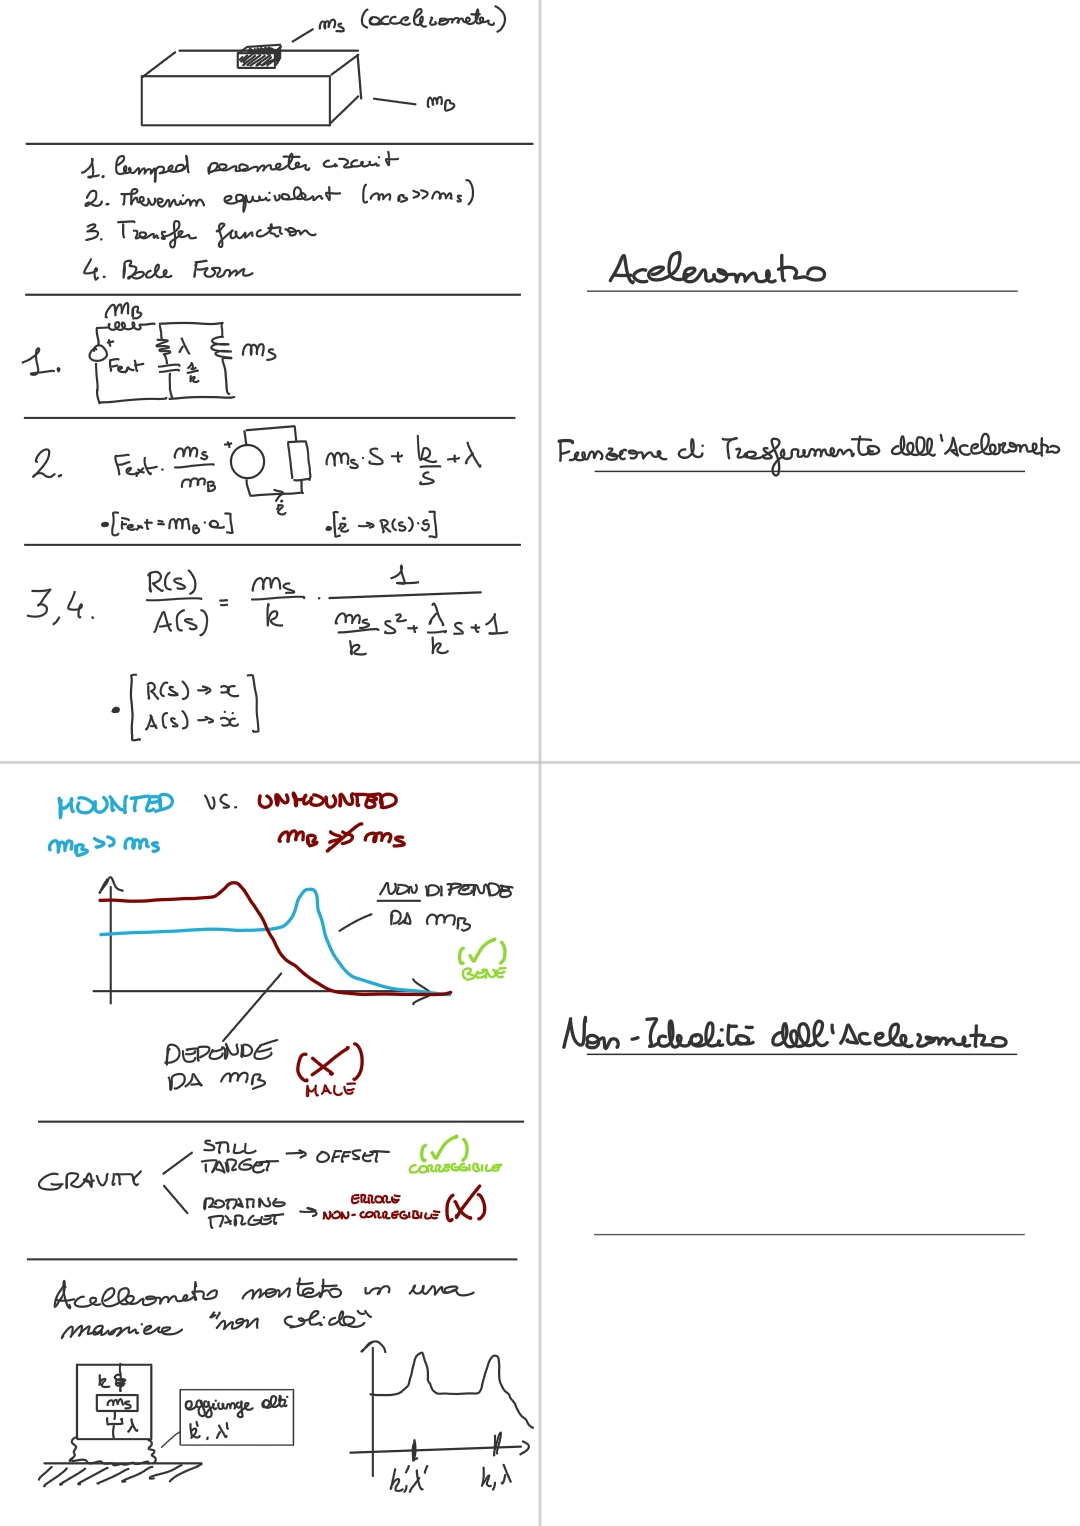 mₛ (accelerometer)
m_B
1. Lumped parameter circuit
2. Thevenin equivalent (m_B >> mₛ)
3. Transfer function
4. Bode Form
Acelerometro
1.
m_B
+
Fext
λ
1/k
mₛ
2. Fext · mₛ/m_B
+
ż
mₛ · s + k/s + λ
• [Fext = m_B · a]
• [ż → R(s) · s]
Funzione di Trasferimento dell'Acelerometro
3,4. R(s)/A(s) = mₛ/k · 1/(mₛ/k s² + λ/k s + 1)
• [R(s) → x
A(s) → ẍ]
MOUNTED VS. UNMOUNTED
m_B >> mₛ
m_B ≯> mₛ
NON DIPENDE
DA m_B
(✓)
BENE
DEPENDE
DA m_B
(X)
MALE
Non-Idealità dell'Acelerometro
GRAVITY
STILL
TARGET → OFFSET
(✓)
CORREGGIBILE
ROTATING
TARGET →
ERRORE
NON-CORREGIBILE (X)
Acellerometro montato in una
maniera "non solida"
k
mₛ
λ
aggiunge altri
k', λ'
k', λ'
k, λ